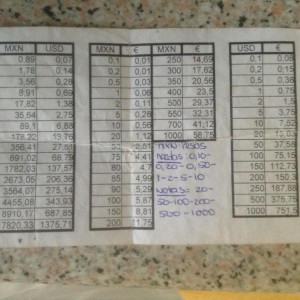 MXN USD
0.89 0,07
1,78 0,14
3,56 0,28
8,91 0,69
17,82 1,38
35,64 2,75
89,1 6,88
178,22 13,75
356,41 27,51
891,02 68,79
1782,03 137,57
2673,05 206,36
3564,07 275,14
4455,08 343,93
8910,17 687,85
17820,33 1375,71
MXN €
0,1 0,01
0,2 0,01
0,5 0,03
1 0,06
2 0,11
5 0,28
10 0,56
12
50
75 4,41
80 4,7
85 4,99
90 5,29
100 5,87
150 8,81
200 11,75
MXN €
250 14,69
300 17,62
350 20,56
400 23,5
500 29,37
550 32,31
700 41,12
1000 58,75
MXN PESOS
0,10-
0,20-0,50-
1-2-5-10
NOTAS: 20-
50-100-200-
500-1000
USD €
0,1 0,08
0,2 0,15
0,5
1
2 1,5
5 3,75
10 7,52
20
50
100 75,15
150 112,73
200 150,3
250 187,88
500 375,75
1000 751,5